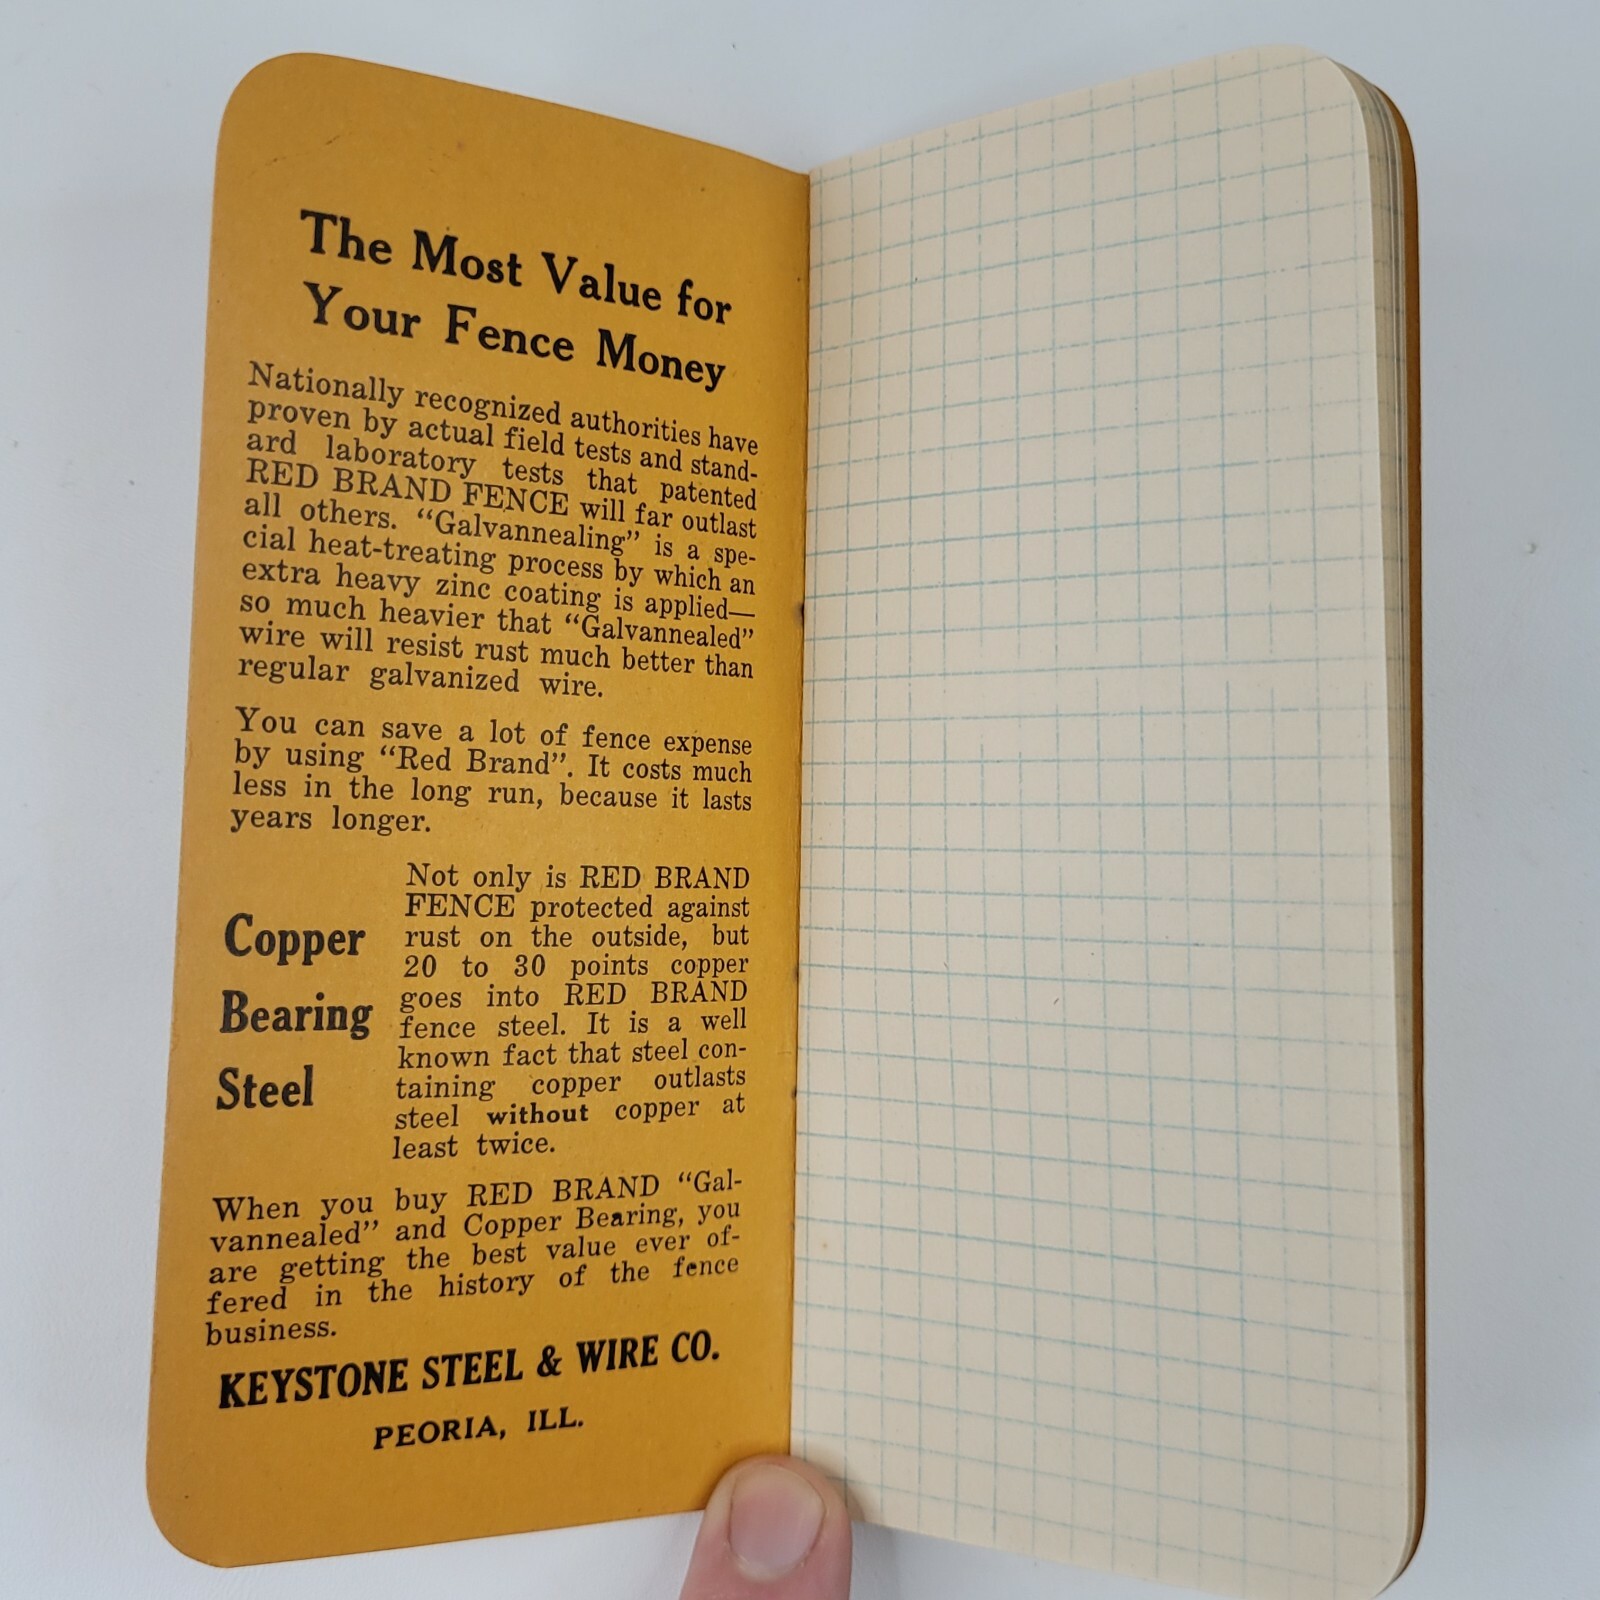 The Most Value for
Your Fence Money
Nationally recognized authorities have
proven by actual field tests and stand-
ard laboratory tests that patented
RED BRAND FENCE will far outlast
all others. “Galvannealing” is a spe-
cial heat-treating process by which an
extra heavy zinc coating is applied—
so much heavier that “Galvannealed”
wire will resist rust much better than
regular galvanized wire.
You can save a lot of fence expense
by using “Red Brand”. It costs much
less in the long run, because it lasts
years longer.
Copper
Bearing
Steel
Not only is RED BRAND
FENCE protected against
rust on the outside, but
20 to 30 points copper
goes into RED BRAND
fence steel. It is a well
known fact that steel con-
taining copper outlasts
steel without copper at
least twice.
When you buy RED BRAND “Gal-
vannealed” and Copper Bearing, you
are getting the best value ever of-
fered in the history of the fence
business.
KEYSTONE STEEL & WIRE CO.
PEORIA, ILL.